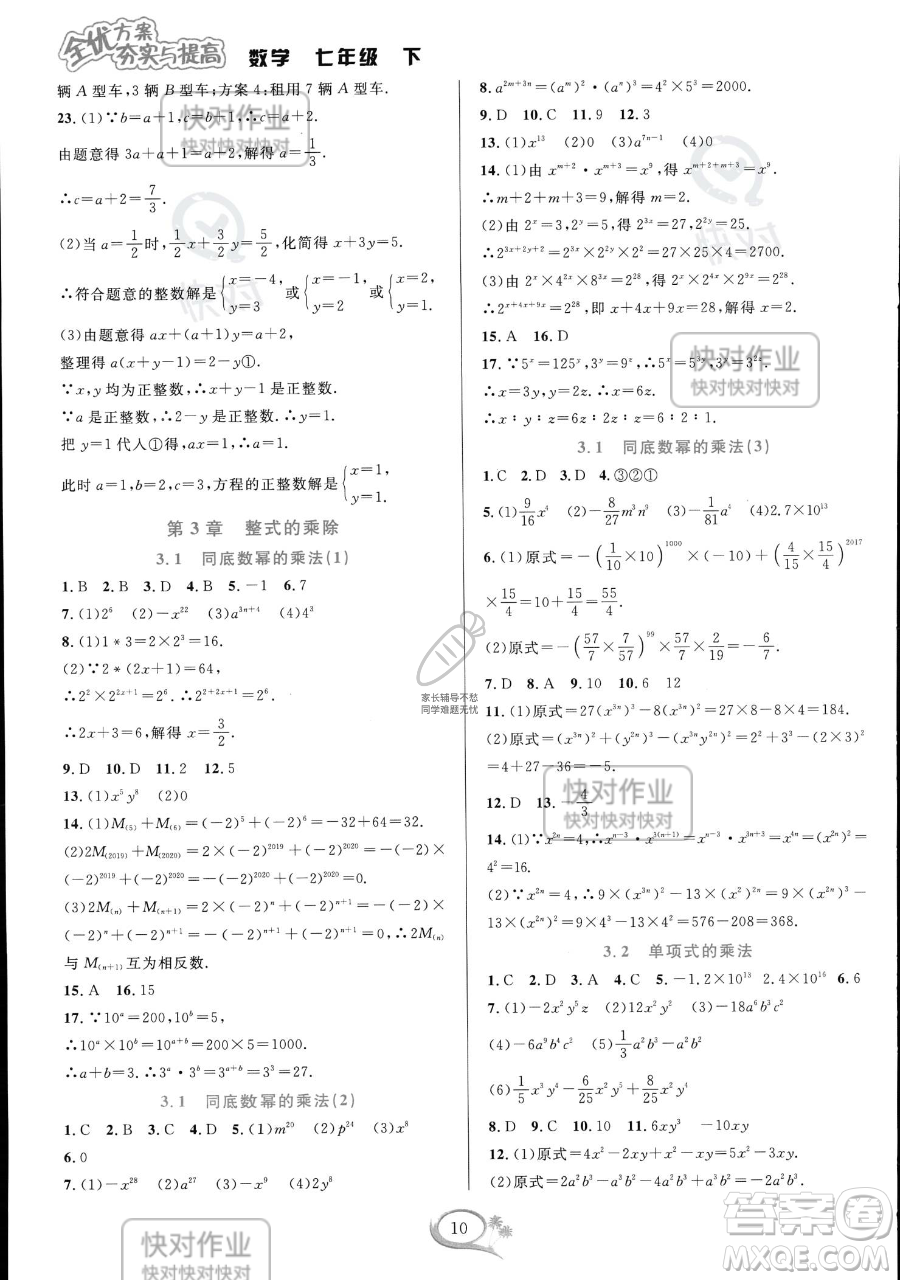 全优方案
夯实与提高 数学 七年级 下
辆 A 型车,3 辆 B 型车;方案 4:租用 7 辆 A 型车.
23.(1)∵b=a+1,c=b+1,∴c=a+2.
由题意得 3a+a+1=a+2,解得 a=1/3.
∴c=a+2=7/3.
(2)当 a=1/2时,1/2x+3/2y=5/2,化简得 x+3y=5.
∴符合题意的整数解是{x=-4, y=3 或{x=-1, y=2 或{x=2, y=1.
(3)由题意得 ax+(a+1)y=a+2,
整理得 a(x+y-1)=2-y①.
∵x,y 均为正整数,∴x+y-1 是正整数.
∵a 是正整数,∴2-y 是正整数.∴y=1.
把 y=1 代人①得,ax=1.∴a=1,x=1.
此时 a=1,b=2,c=3,方程的正整数解是{x=1, y=1.
第 3 章 整式的乘除
3.1 同底数幂的乘法(1)
1.B 2.B 3.D 4.B 5.-1 6.7
7.(1)2⁶ (2)-x²² (3)a³ⁿ⁺⁴ (4)4³
8.(1)1*3=2×2³=16.
(2)∵2*(2x+1)=64,
∴2²×2^(2x+1)=2⁶.∴2^(2+2x+1)=2⁶.
∴2x+3=6,解得 x=3/2.
9.D 10.D 11.2 12.5
13.(1)x⁵y⁸ (2)0
14.(1)M₍₅₎+M₍₆₎=(-2)⁵+(-2)⁶=-32+64=32.
(2)2M₍₂₀₁₉₎+M₍₂₀₂₀₎=2×(-2)²⁰¹⁹+(-2)²⁰²⁰=-
(-2)×(-2)²⁰¹⁹+(-2)²⁰²⁰=-(-2)²⁰²⁰+(-2)²⁰²⁰=0.
(3)2M₍ₙ₎+M₍ₙ₊₁₎=-(-2)×(-2)ⁿ+(-2)ⁿ⁺¹=
-(-2)ⁿ⁺¹+(-2)ⁿ⁺¹=0,∴2M₍ₙ₎
与 M₍ₙ₊₁₎ 互为相反数.
15.A 16.15
17.∵10ᵃ=200,10ᵇ=5,
∴10ᵃ×10ᵇ=10ᵃ⁺ᵇ=200×5=1000.
∴a+b=3.∴3ᵃ·3ᵇ=3ᵃ⁺ᵇ=3³=27.
3.1 同底数幂的乘法(2)
1.C 2.B 3.D 4.D 5.(1)m²⁰ (2)p²⁴ (3)x⁹
6.0
7.(1)-x²⁸ (2)a¹⁵ (3)-x⁹ (4)2y⁸
8.a^(2m+3n)=(aᵐ)²·(aⁿ)³=4²×5³=2000.
9.D 10.C 11.9 12.3
13.(1)x¹³ (2)0 (3)a⁷ⁿ⁻¹ (4)0
14.(1)由 xᵐ⁺²·xᵐ⁺³=x⁹,得 x^(m+2+m+3)=x⁹.
∴m+2+m+3=9,解得 m=2.
(2)由 2ˣ=3,2ʸ=5,得 2³ˣ=27,2²ʸ=25.
∴2^(3x+2y+2)=2³ˣ×2²ʸ×2²=27×25×4=2700.
(3)由 2ˣ×4²ˣ×8³ˣ=2²⁸,得 2ˣ×2⁴ˣ×2⁹ˣ=2²⁸.
∴2^(x+4x+9x)=2²⁸,即 x+4x+9x=28,解得 x=2.
15.A 16.D
17.∵5ˣ=125ʸ,3ʸ=9ᶻ,∴5ˣ=5³ʸ,3ʸ=3²ᶻ.
∴x=3y,y=2z.∴x=6z.
∴x:y:z=6z:2z:z=6:2:1.
3.1 同底数幂的乘法(3)
1.C 2.D 3.D 4.③②①
5.(1)9/16x⁴ (2)-8/27m³n⁹ (3)-1/81a⁴ (4)2.7×10¹³
6.(1)原式=-(1/10×10)¹⁰⁰⁰×(-10)+(4/15×15/4)²⁰¹⁷
×15/4=10+15/4=55/4.
(2)原式=-(57/7×7/57)⁹⁹×57/7×2/19=-6/7.
7.D 8.A 9.D 10.6 12
11.(1)原式=27(x³ⁿ)²-8(x³ⁿ)²=27×8-8×4=184.
(2)原式=(x³ⁿ)²+(y²ⁿ)³-x³ⁿ·y²ⁿ·y²ⁿ=2²+3³-2²×3²
=4+27-36=-5.
12.D 13.-4/3
14.(1)∵x²ⁿ=4,∴xⁿ⁻³·x³⁽ⁿ⁺¹⁾=xⁿ⁻³·x³ⁿ⁺³=x⁴ⁿ=(x²ⁿ)²=
4²=16.
(2)∵x²ⁿ=4,∴9(x³ⁿ)²-13(x²)²ⁿ=9×(x²ⁿ)³-
13×(x²ⁿ)²=9×4³-13×4²=576-208=368.
3.2 单项式的乘法
1.C 2.D 3.A 4.C 5.-1.2×10¹³ 2.4×10¹⁵ 6.6
7.(1)-2x²y⁵z (2)12x³y⁴ (3)-18a⁶b³c²
(4)-6a⁹b⁹c (5)1/3a²b³-a²b²
(6)1/5x³y⁴-6/25x²y⁴+8/25x²y³
8.D 9.C 10.B 11.6xy³-10xy
12.(1)原式=4x²-2xy-4x²+2xy=0.
(2)原式=2x²-2x-2x²+5x=3x.
家长辅导不愁
同学难题无忧
快对作业
快对快对快对
快对作业
快对快对快对
快对作业
快对快对快对
快对作业
快对快对快对
10
答案圈
MXQE.COM